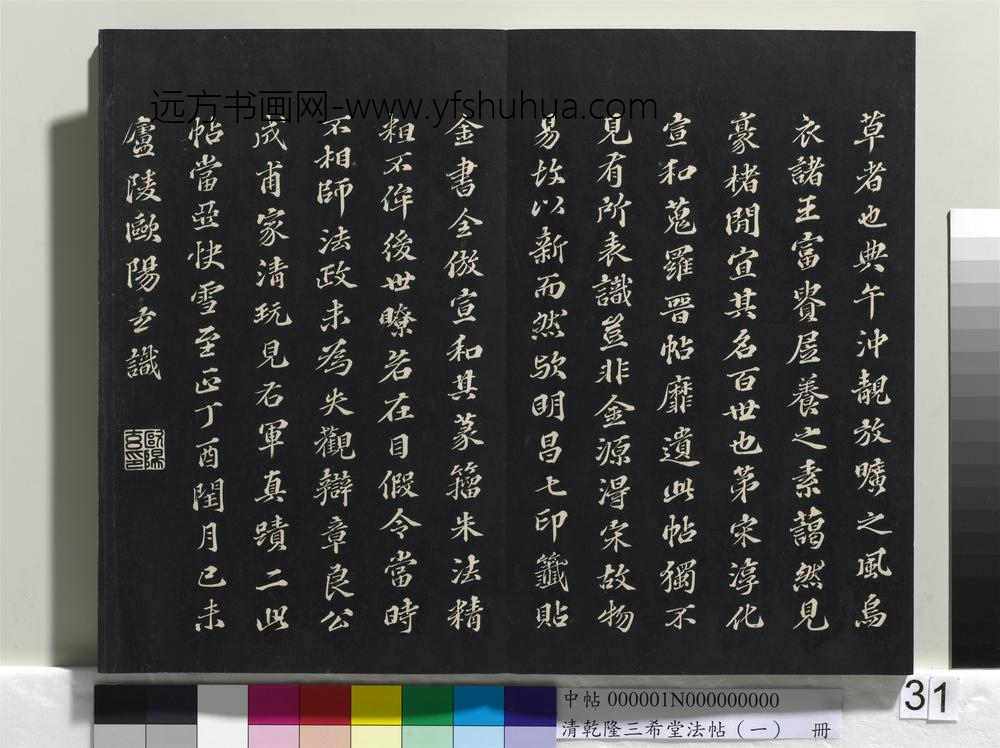 远方书画网-www.yfshuhua.com
草者也典午沖靚放曠之風烏
衣諸王富貴居養之素藹然見
豪楮閒宣其名百世也第宋淳化
宣和蒐羅晉帖靡遺此帖獨不
見有所表識豈非金源得宋故物
易故以新而然歟明昌七印籤貼
金書全倣宣和其篆籀朱法精
粗不侔後世瞭若在目假令當時
不相師法政未為失觀辯章良公
成甫家清玩見右軍真蹟二此
帖當亞快雪至正丁酉閏月已未
廬陵歐陽玄識
歐陽玄印
中帖 000001N000000000
清乾隆三希堂法帖（一） 冊
31